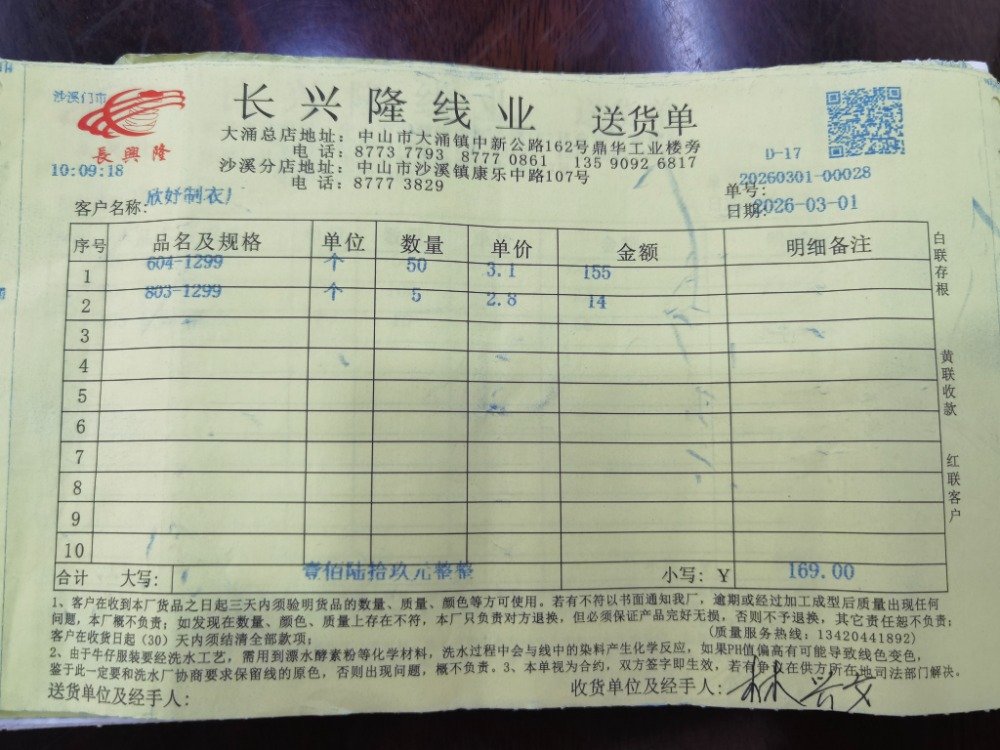 沙溪门市
長興隆
10:09:18
长兴隆线业 送货单
大涌总店地址: 中山市大涌镇中新公路162号鼎华工业楼旁
电话: 8773 7793 8777 0861 135 9092 6817
沙溪分店地址: 中山市沙溪镇康乐中路107号
电话: 8777 3829
D-17
单号: 20260301-00028
客户名称: 欣妤制衣厂
日期: 2026-03-01
序号 品名及规格 单位 数量 单价 金额 明细备注
1 604-1299 个 50 3.1 155
2 803-1299 个 5 2.8 14
3
4
5
6
7
8
9
10
合计 大写: 壹佰陆拾玖元整整 小写: ¥ 169.00
白联存根
黄联收款
红联客户
1、客户在收到本厂货品之日起三天内须验明货品的数量、质量、颜色等方可使用。若有不符以书面通知我厂，逾期或经过加工成型后质量出现任何
问题，本厂概不负责；如发现在数量、颜色、质量上存在不符，本厂只负责对方退换，但必须保证产品完好无损，否则不予退换，其它责任恕不负责；
客户在收货日起（30）天内须结清全部款项；
(质量服务热线: 13420441892)
2、由于牛仔服装要经洗水工艺，需用到漂水酵素粉等化学材料，洗水过程中会与线中的染料产生化学反应，如果PH值偏高有可能导致线色变色，
鉴于此一定要和洗水厂协商要求保留线的原色，否则出现问题，概不负责。3、本单视为合约，双方签字即生效，若有争议在供方所在地司法部门解决。
送货单位及经手人:
收货单位及经手人: